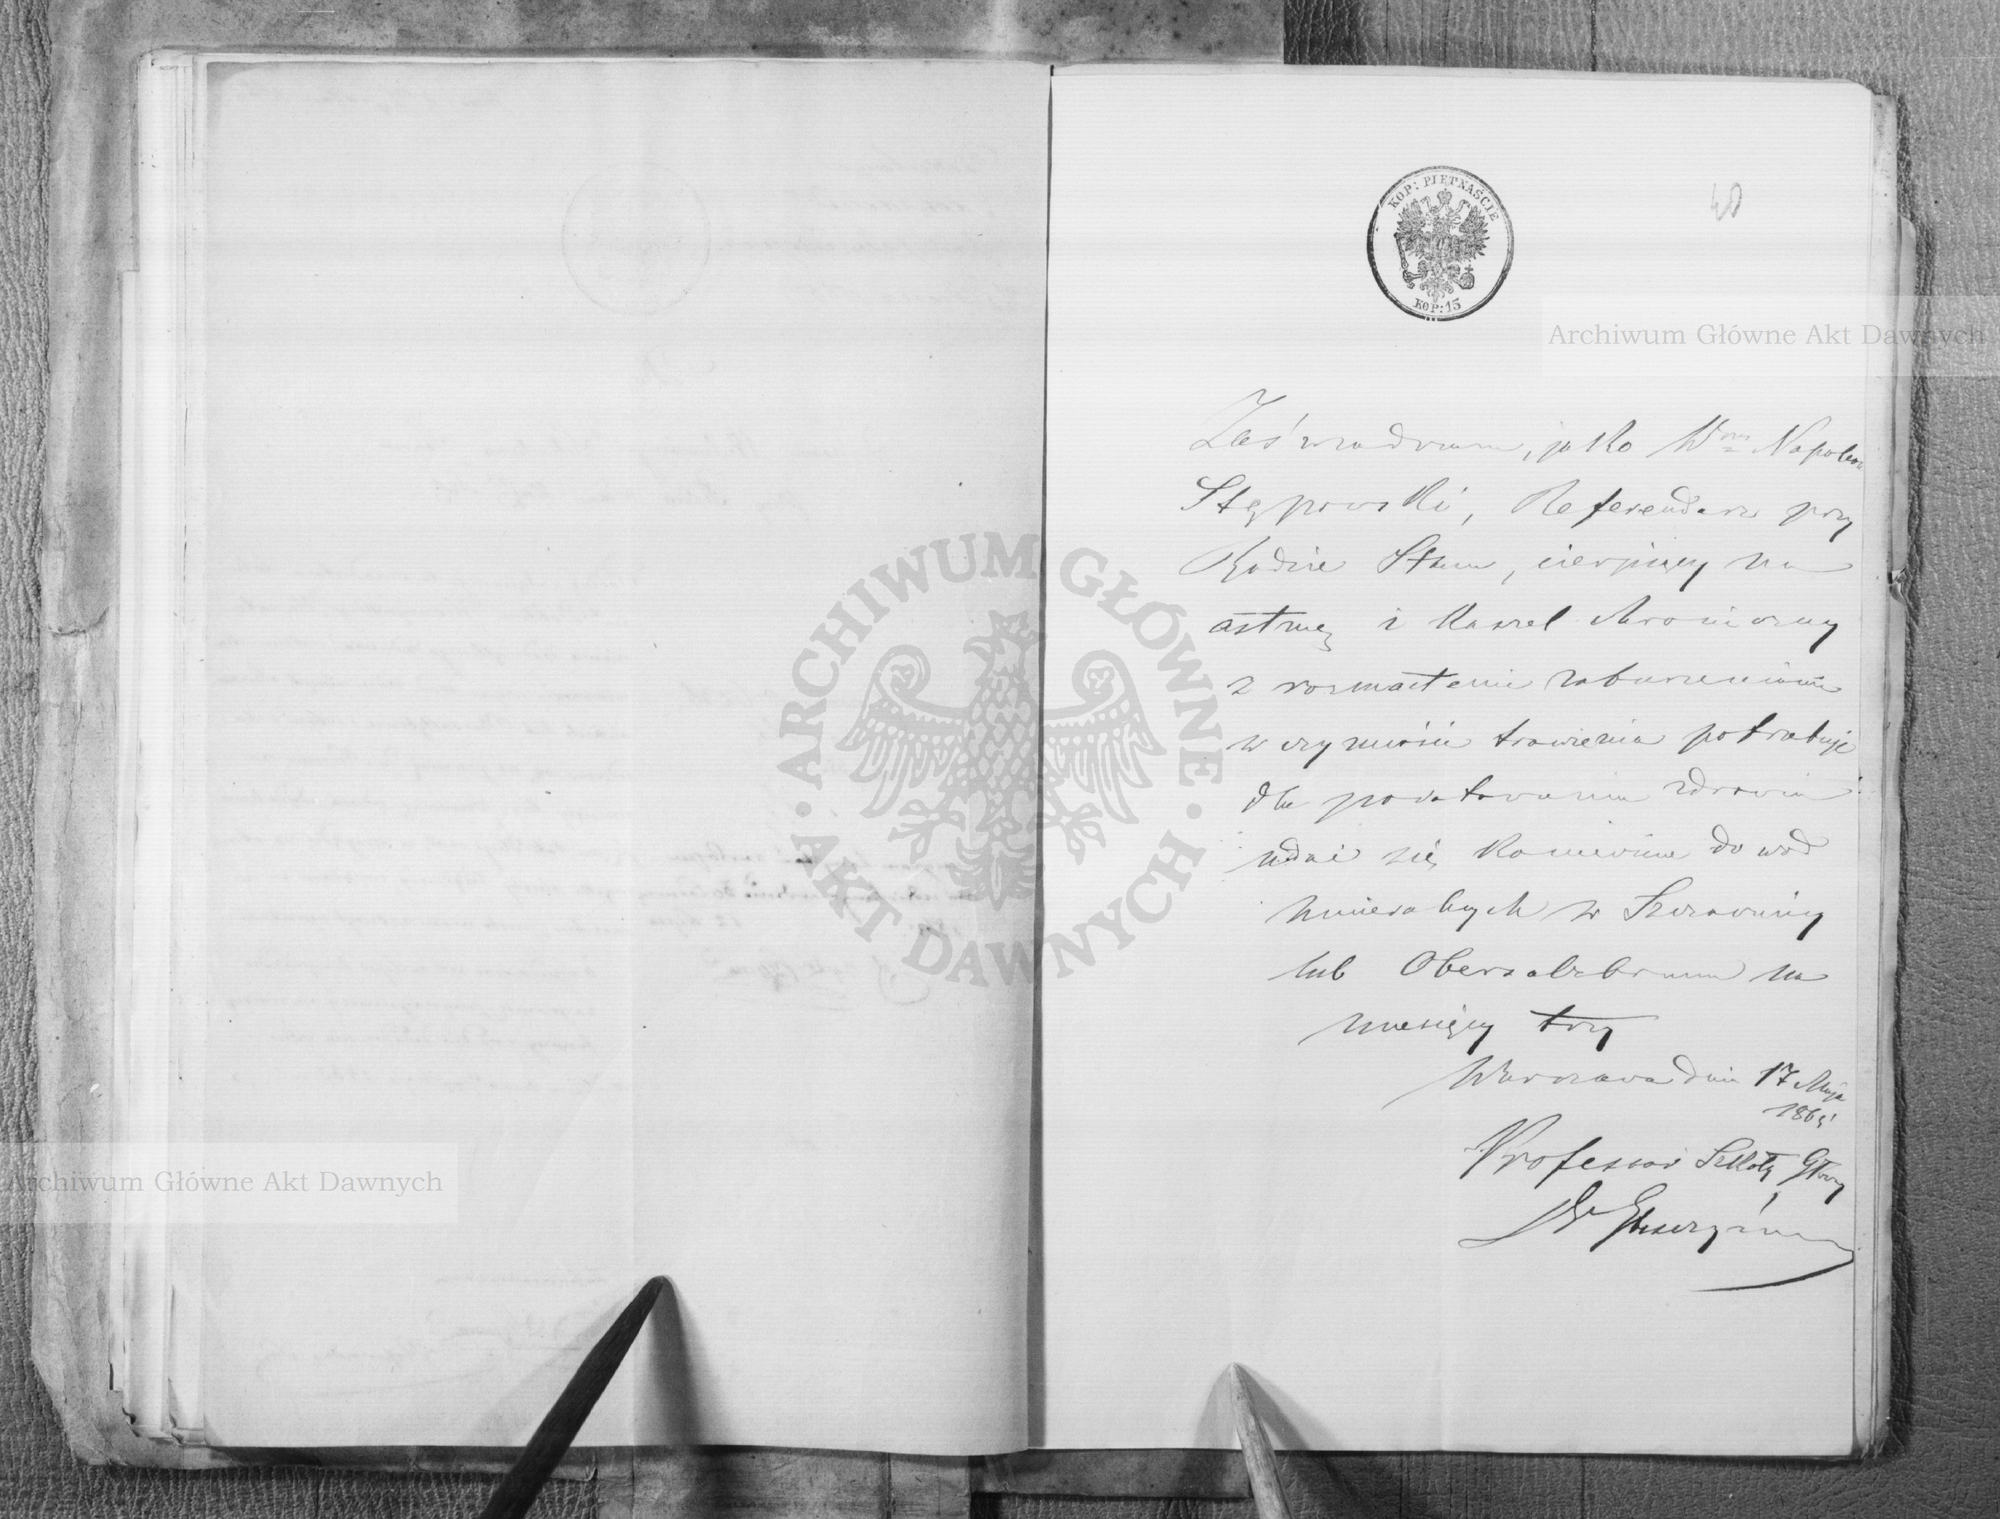 KOP: PIĘTNAŚCIE
KOP: 15
40
Archiwum Główne Akt Dawnych
Zaświadczam, jako Wny Napoleon
Stępowski, Referendarz przy
Radzie Stanu, cierpiący na
astmę i kaszel chroniczny
z rozmaitemi zaburzeniami
w czynności trawienia potrzebuje
dla poratowania zdrowia
udać się koniecznie do wód
mineralnych w Szczawnicy
lub Obersalzbrunn na
miesięcy trzy
Warszawa dnia 17 Maja
1865
Professor Szkoły Głównej
Dr
ARCHIWUM GŁÓWNE AKT DAWNYCH
Archiwum Główne Akt Dawnych